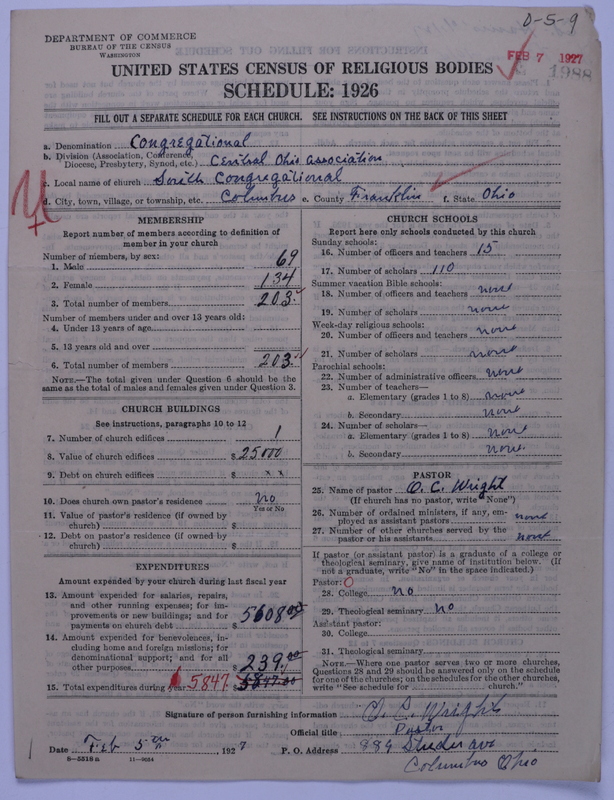 D-5-9
DEPARTMENT OF COMMERCE
BUREAU OF THE CENSUS
WASHINGTON
FEB 7 1927
1988
UNITED STATES CENSUS OF RELIGIOUS BODIES
SCHEDULE: 1926
FILL OUT A SEPARATE SCHEDULE FOR EACH CHURCH. SEE INSTRUCTIONS ON THE BACK OF THIS SHEET
a. Denomination Congregational
b. Division (Association, Conference, Diocese, Presbytery, Synod, etc.) Central Ohio Association
c. Local name of church South Congregational
d. City, town, village, or township, etc. Columbus e. County Franklin f. State Ohio
MEMBERSHIP
Report number of members according to definition of
member in your church
Number of members, by sex:
1. Male 69
2. Female 134
3. Total number of members 203
Number of members under and over 13 years old:
4. Under 13 years of age
5. 13 years old and over
6. Total number of members 203
NOTE.—The total given under Question 6 should be the
same as the total of males and females given under Question 3.
CHURCH BUILDINGS
See instructions, paragraphs 10 to 12
7. Number of church edifices 1
8. Value of church edifices $ 25000
9. Debt on church edifices $ x x
10. Does church own pastor's residence no
Yes or No
11. Value of pastor's residence (if owned by
church) $
12. Debt on pastor's residence (if owned by
church) $
EXPENDITURES
Amount expended by your church during last fiscal year
13. Amount expended for salaries, repairs,
and other running expenses; for im-
provements or new buildings; and for
payments on church debt $ 5608.00
14. Amount expended for benevolences, in-
cluding home and foreign missions; for
denominational support; and for all
other purposes $ 239.00
15. Total expenditures during year $ 5847 5847.00
CHURCH SCHOOLS
Report here only schools conducted by this church
Sunday schools:
16. Number of officers and teachers 15
17. Number of scholars 110
Summer vacation Bible schools:
18. Number of officers and teachers none
19. Number of scholars none
Week-day religious schools:
20. Number of officers and teachers none
21. Number of scholars none
Parochial schools:
22. Number of administrative officers none
23. Number of teachers—
a. Elementary (grades 1 to 8) none
b. Secondary none
24. Number of scholars—
a. Elementary (grades 1 to 8) none
b. Secondary none
PASTOR
25. Name of pastor O. C. Wright
(If church has no pastor, write "None")
26. Number of ordained ministers, if any, em-
ployed as assistant pastors none
27. Number of other churches served by the
pastor or his assistants none
If pastor (or assistant pastor) is a graduate of a college or
theological seminary, give name of institution below. (If
not a graduate, write "No" in the space indicated.)
Pastor: O
28. College no
29. Theological seminary no
Assistant pastor:
30. College
31. Theological seminary
NOTE.—Where one pastor serves two or more churches,
Questions 28 and 29 should be answered only on the schedule
for one of the churches; on the schedules for the other churches,
write "See schedule for church."
Signature of person furnishing information O. C. Wright
Official title Pastor
Date Feb 5th, 1927 P. O. Address 889 Studer ave
8—5318 a 11—9684
Columbus Ohio